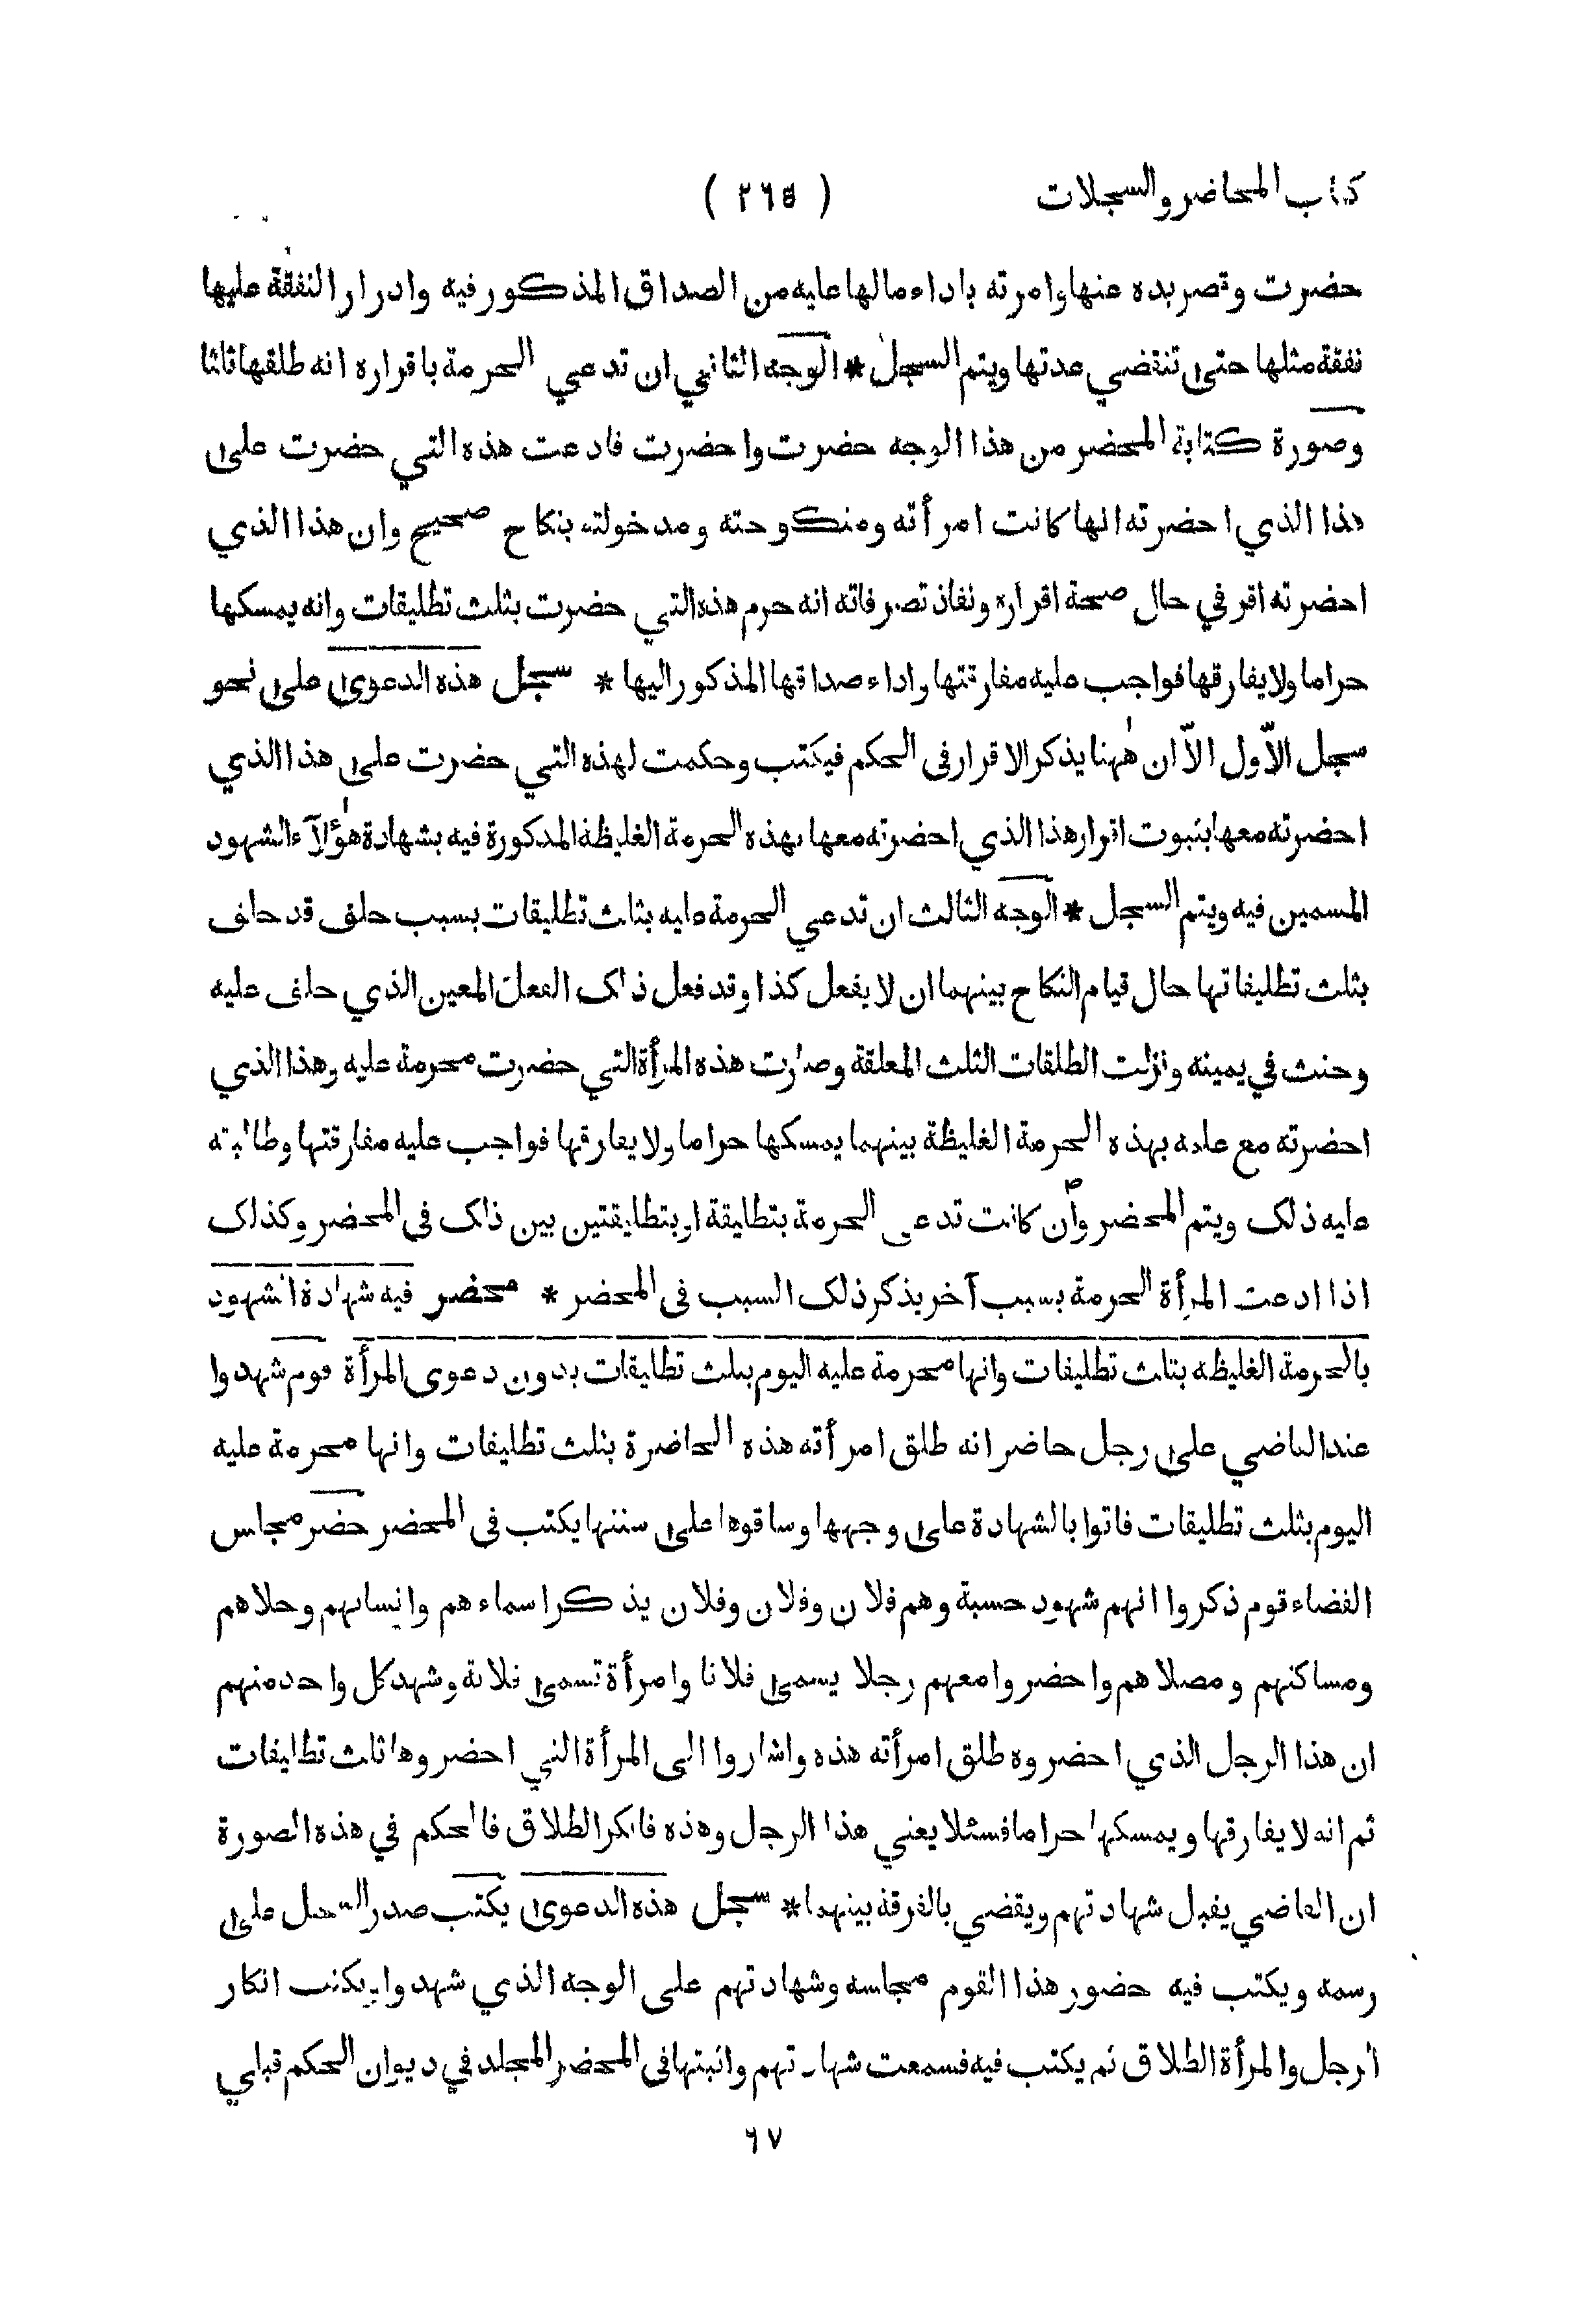 كتاب المحاضر والسجلات ( ٢٦٥ )
حضرت وقصر يده عنها وامرته باداء مالها عليه من الصداق المذكور فيه وادرار النفقة عليها
نفقة مثلها حتى تنقضي عدتها ويتم السجل * الوجه الثاني ان تدعي الحرمة باقراره انه طلقها ثلثا
وصورة كتابة المحضر من هذا الوجه حضرت واحضرت فادعت هذه التي حضرت على
هذا الذي احضرته انها كانت امرأته ومنكوحته ومدخولته بنكاح صحيح وان هذا الذي
احضرته اقر في حال صحة اقراره ونفاذ تصرفاته انه حرم هذه التي حضرت بثلث تطليقات وانه يمسكها
حراما ولا يفارقها فواجب عليه مفارقتها واداء صداقها المذكور اليها * سجل هذه الدعوى على نحو
سجل الاّول الاّ ان هٰهنا يذكر الاقرار فى الحكم فيكتب وحكمت لهذه التي حضرت على هذا الذي
احضرته معها بثبوت اقرار هذا الذي احضرته معها بهذه الحرمة الغليظة المذكورة فيه بشهادة هٰؤلآء الشهود
المسمين فيه ويتم السجل * الوجه الثالث ان تدعي الحرمة عليه بثلث تطليقات بسبب حلف قد حلف
بثلث تطليقاتها حال قيام النكاح بينهما ان لا يفعل كذا وقد فعل ذلك الفعل المعين الذي حلف عليه
وحنث في يمينه ونزلت الطلقات الثلث المعلقة وصارت هذه المرأة التي حضرت محرمة عليه وهذا الذي
احضرته مع علمه بهذه الحرمة الغليظة بينهما يمسكها حراما ولا يفارقها فواجب عليه مفارقتها وطالبته
عليه ذلك ويتم المحضر وان كانت تدعي الحرمة بتطليقة او بتطليقتين بين ذلك فى المحضر وكذلك
اذا ادعت المرأة الحرمة بسبب آخر يذكر ذلك السبب فى المحضر * محضر فيه شهادة الشهود
بالحرمة الغليظه بثلث تطليقات وانها محرمة عليه اليوم بثلث تطليقات بدون دعوى المرأة قوم شهدوا
عند القاضي على رجل حاضر انه طلق امرأته هذه الحاضرة بثلث تطليقات وانها محرمة عليه
اليوم بثلث تطليقات فاتوا بالشهادة على وجهها وساقوها على سننها يكتب فى المحضر حضر مجلس
القضاء قوم ذكروا انهم شهود حسبة وهم فلان وفلان وفلان يذكر اسماءهم وانسابهم وحلاهم
ومساكنهم ومصلاهم واحضروا معهم رجلا يسمى فلانا وامرأة تسمى فلانة وشهد كل واحد منهم
ان هذا الرجل الذي احضروه طلق امرأته هذه واشاروا الى المرأة التي احضروها ثلث تطليقات
ثم انه لا يفارقها ويمسكها حراما فسئلا يعني هذا الرجل وهذه فانكر الطلاق فالحكم في هذه الصورة
ان القاضي يقبل شهادتهم ويقضي بالفرقة بينهما * سجل هذه الدعوى يكتب صدر السجل على
رسمه ويكتب فيه حضور هذا القوم مجلسه وشهادتهم على الوجه الذي شهدوا ويكتب انكار
الرجل والمرأة الطلاق ثم يكتب فيه فسمعت شهادتهم واثبتها فى المحضر المجلد في ديوان الحكم قبلي
٦٧